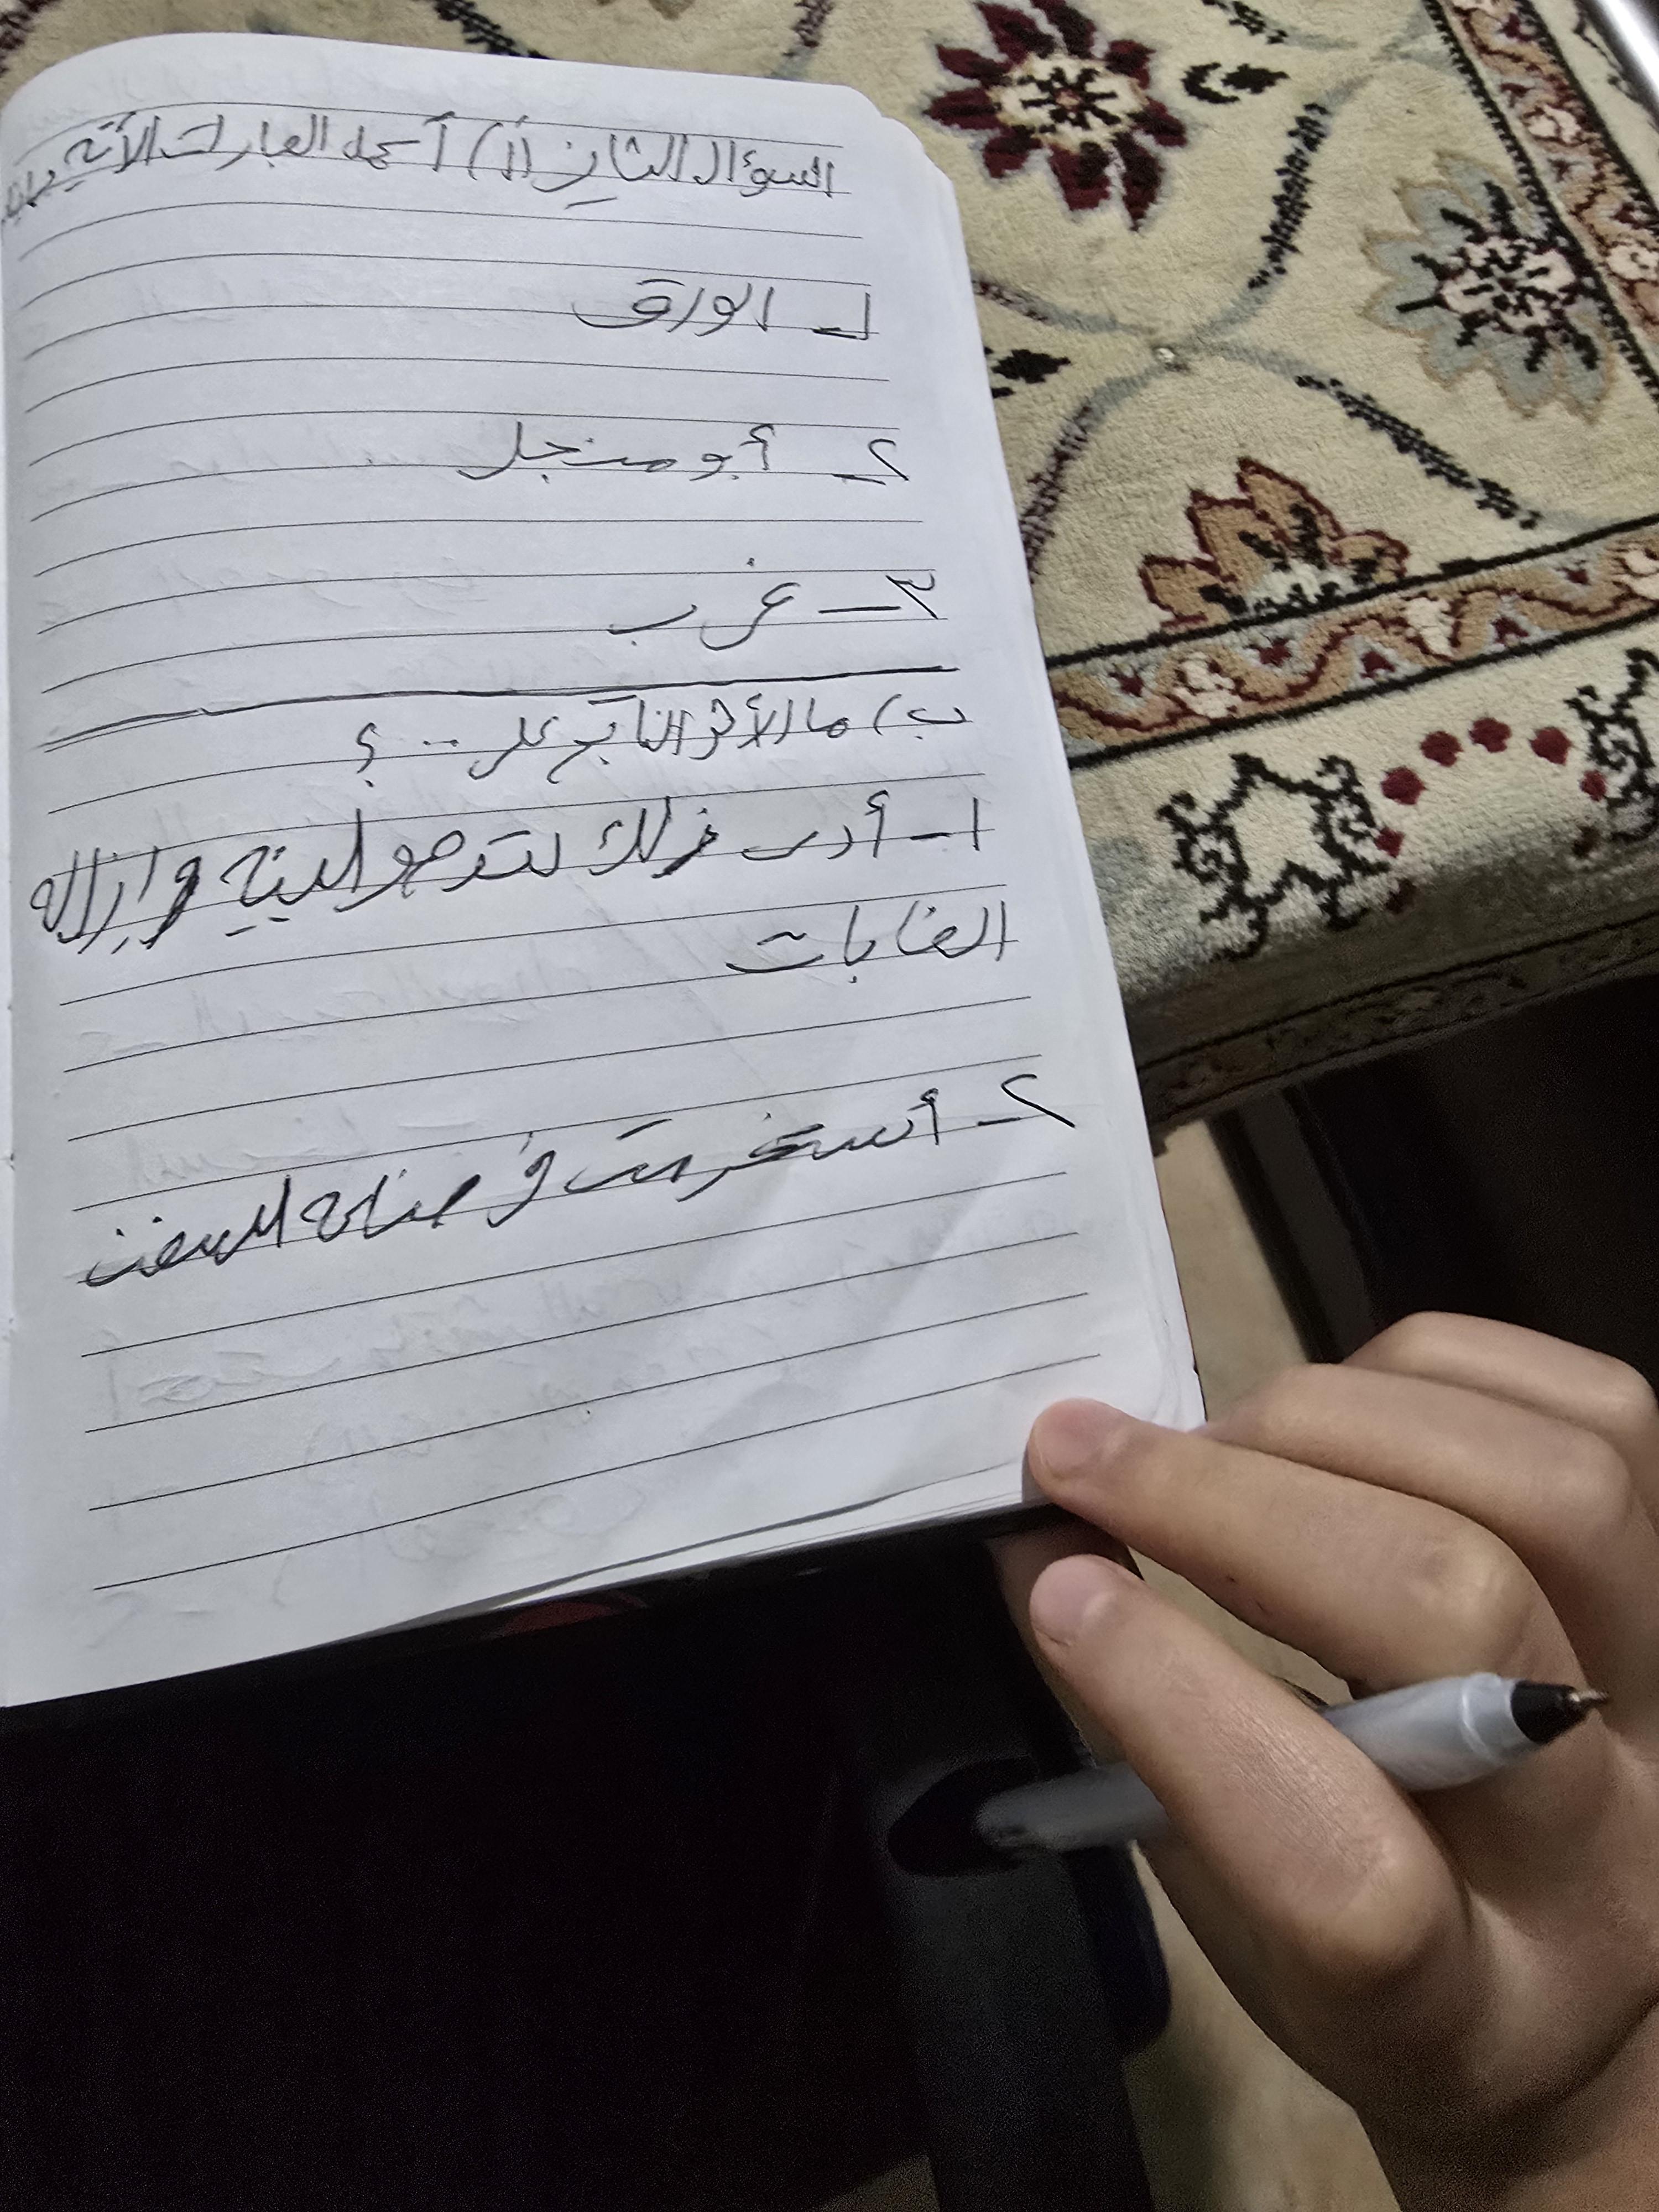 السؤال الثاني أ) أكمل العبارات الآتية
١- الورق
٢- أبو منجل
٣- غرب
ب) ما الأثر الناتج على .. ؟
١- أدى ذلك لتدهور البيئة وإزالة
الغابات
٢- أستخدمت في صناعة السفن